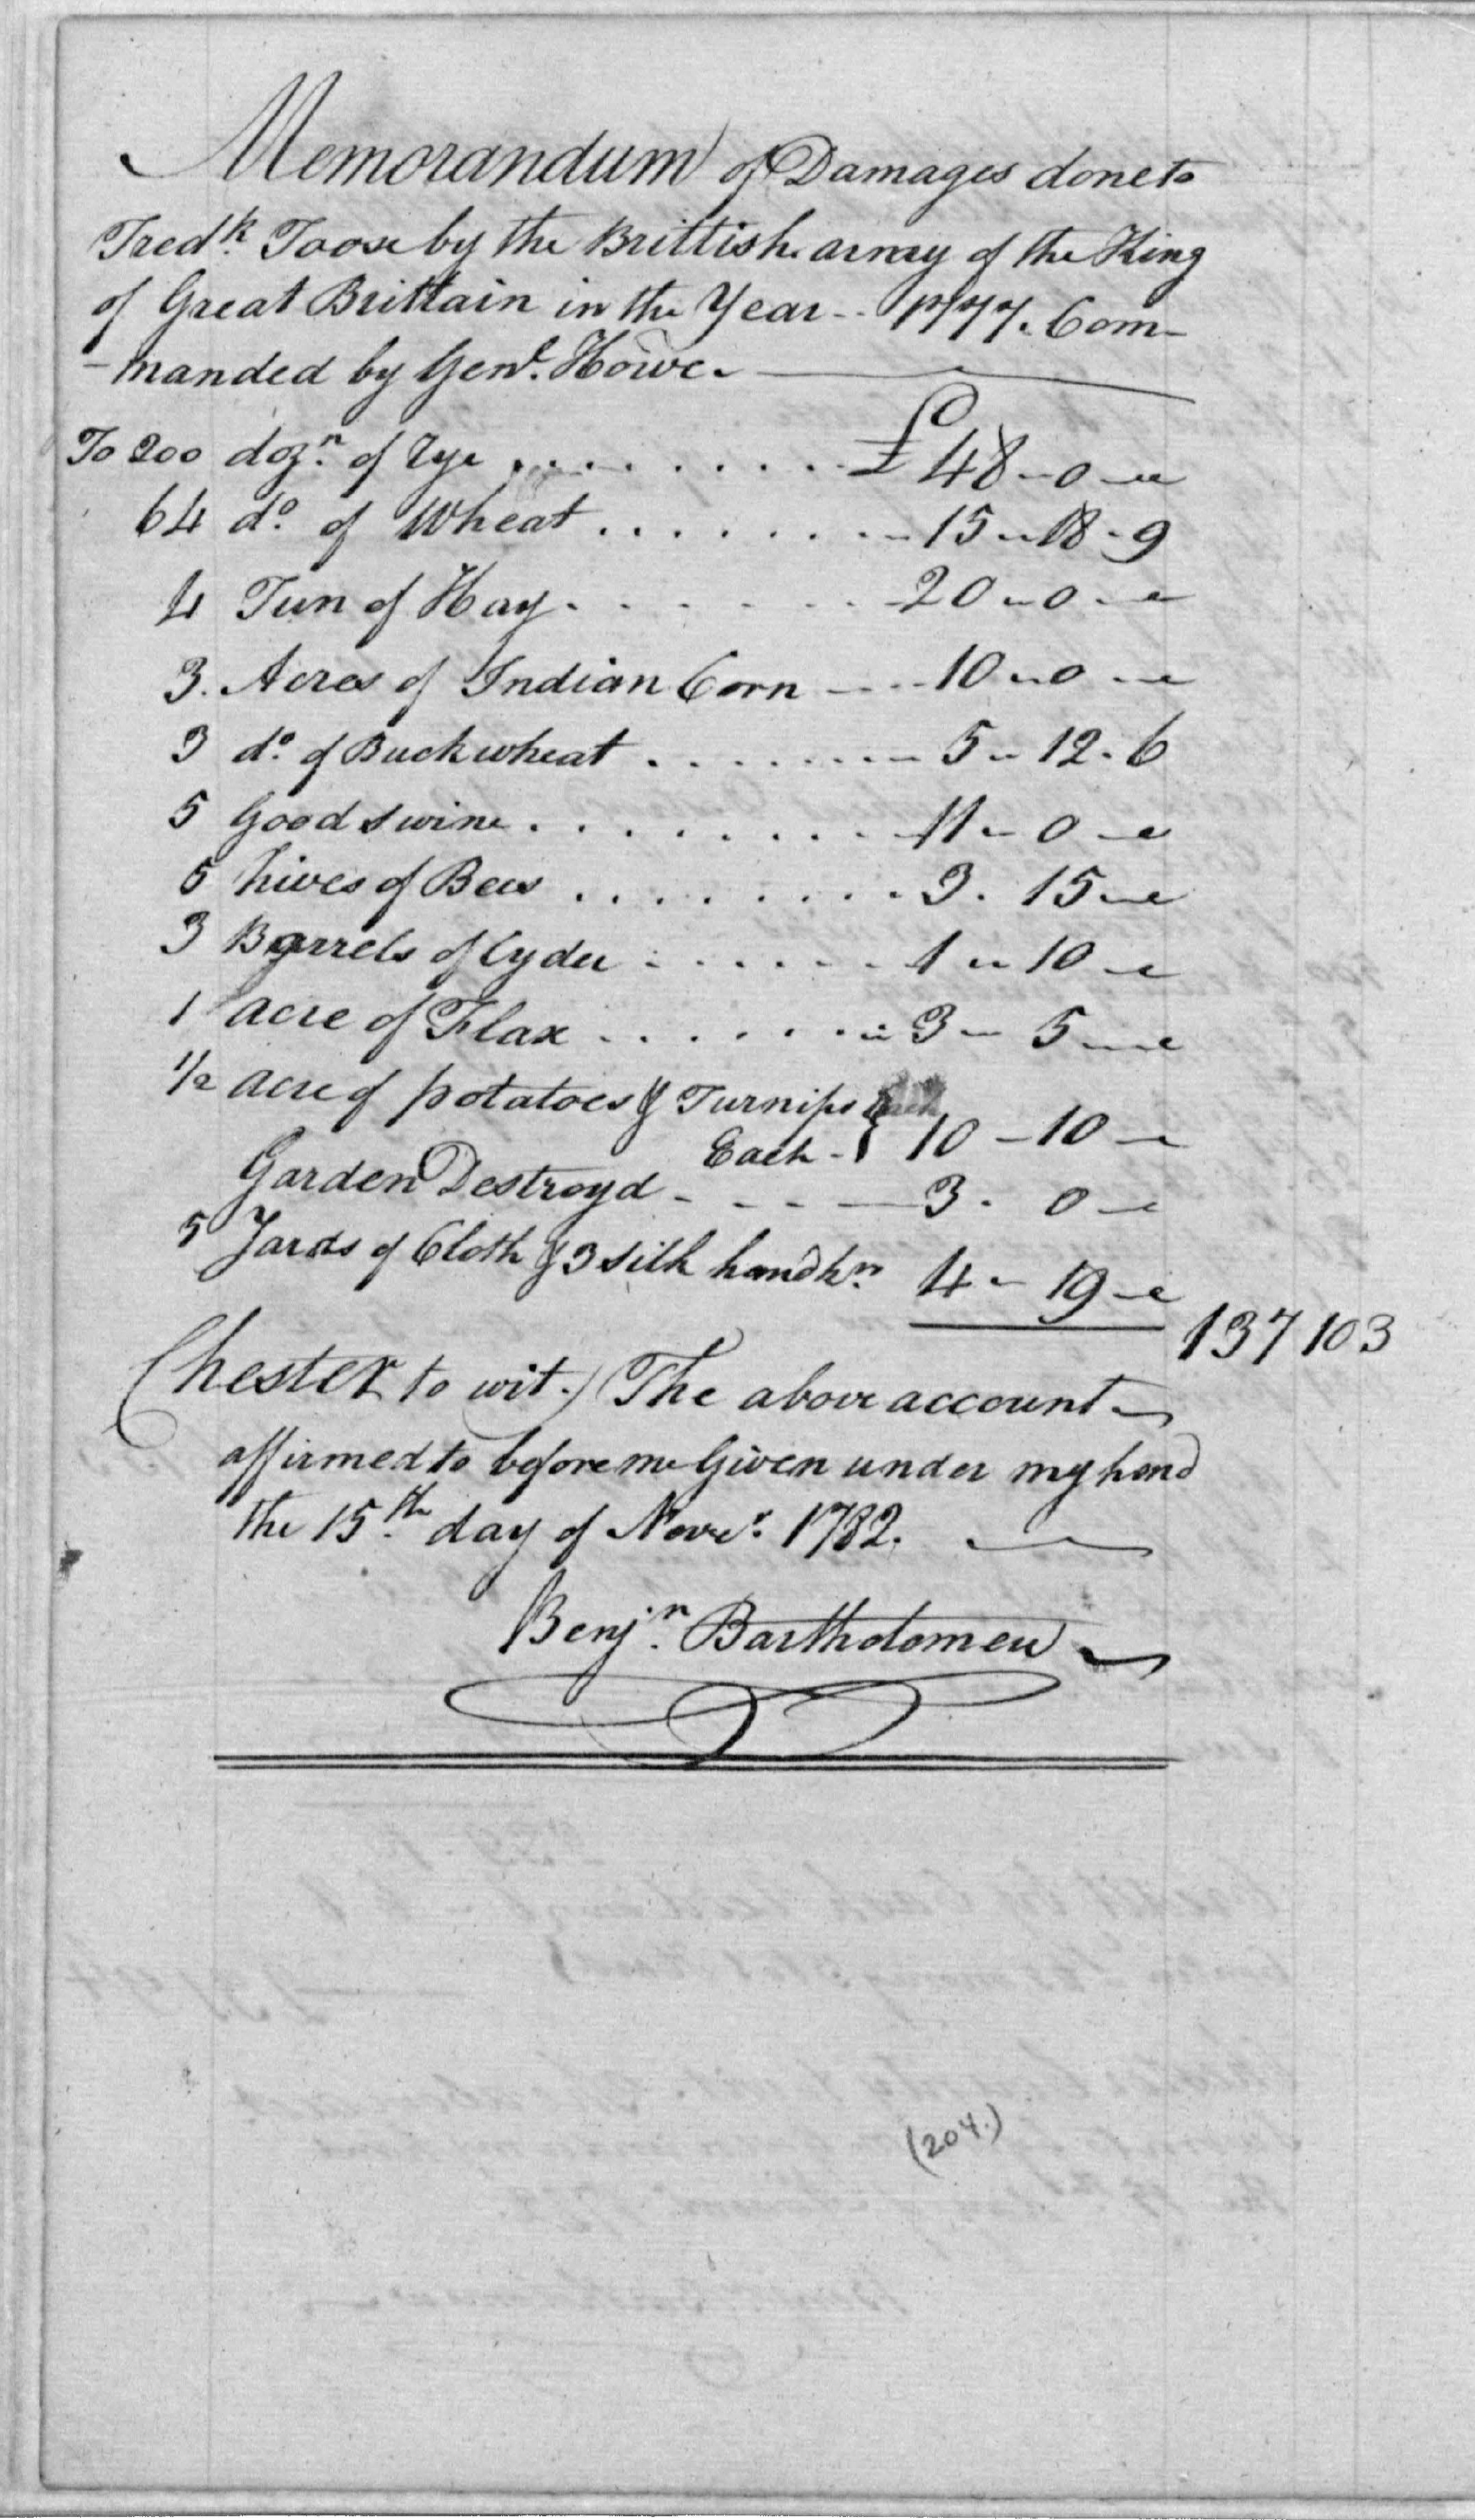 Memorandum of Damages done to
Fredk. Foose by the Brittish army of the King
of Great Brittain in the Year - - 1777. Com-
-manded by Genl. Howe.
To 200 dozn. of Rye . . . . . . . . . £ 48 - 0 -
64 do. of Wheat . . . . . . . . 15 - 18 - 9
4 Tun of Hay . . . . . . . 20 - 0 -
3. Acres of Indian Corn - - - 10 - 0 -
3 do. of Buckwheat . . . . . . . . 5 - 12 - 6
5 Good swine . . . . . . . . . 11 - 0 -
5 hives of Bees . . . . . . . . . 3 . 15 -
3 Barrels of Cyder . . . . . . . 1 - 10 -
1 acre of Flax . . . . . . . . 3 - 5 -
1/2 acre of potatoes & Turnips
Each - } 10 - 10 -
Garden Destroyd - - - - 3 . 0 -
5 Yards of Cloth & 3 silk handkn. 4 - 19 -
137 10 3
Chester to wit.) The above account
affirmed to before me Given under my hand
the 15.th day of Novr. 1782.
Benjn. Bartholomew
(204.)